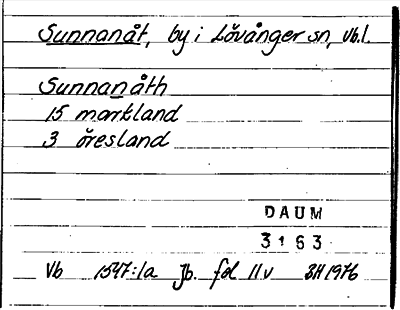 Sunnanåt, by i Lövånger sn, Vb.l.
Sunnanåth
15 markland
3 öresland
DAUM
3163
Vb 1547:1a Jb. fol 11v BH 1976